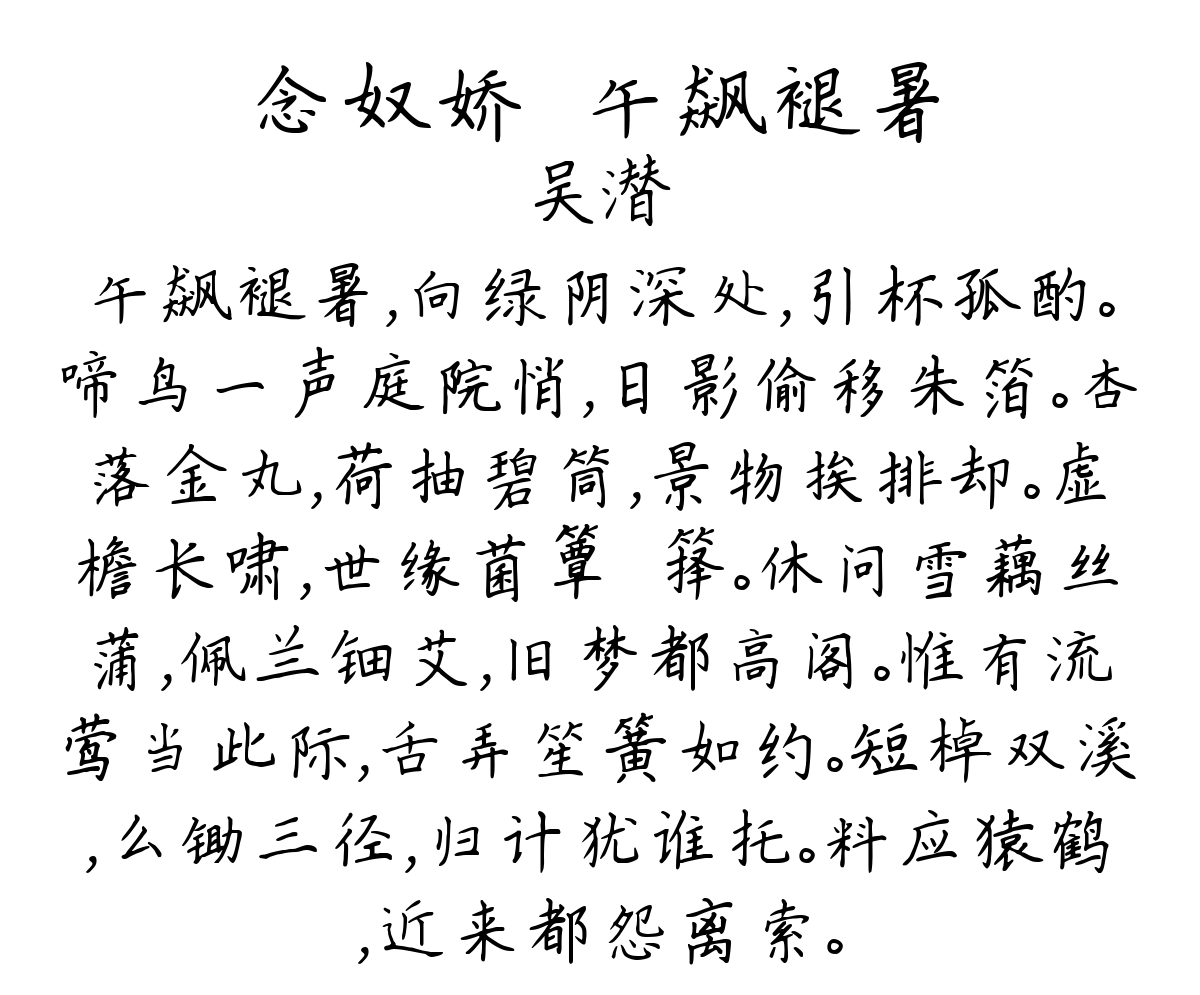 念奴娇 午飙褪暑
吴潜
午飙褪暑,向绿阴深处,引杯孤酌。
啼鸟一声庭院悄,日影偷移朱箔。杏
落金丸,荷抽碧筒,景物挨排却。虚
檐长啸,世缘菌簟 箨。休问雪藕丝
蒲,佩兰钿艾,旧梦都高阁。惟有流
莺当此际,舌弄笙簧如约。短棹双溪
,么锄三径,归计犹谁托。料应猿鹤
,近来都怨离索。